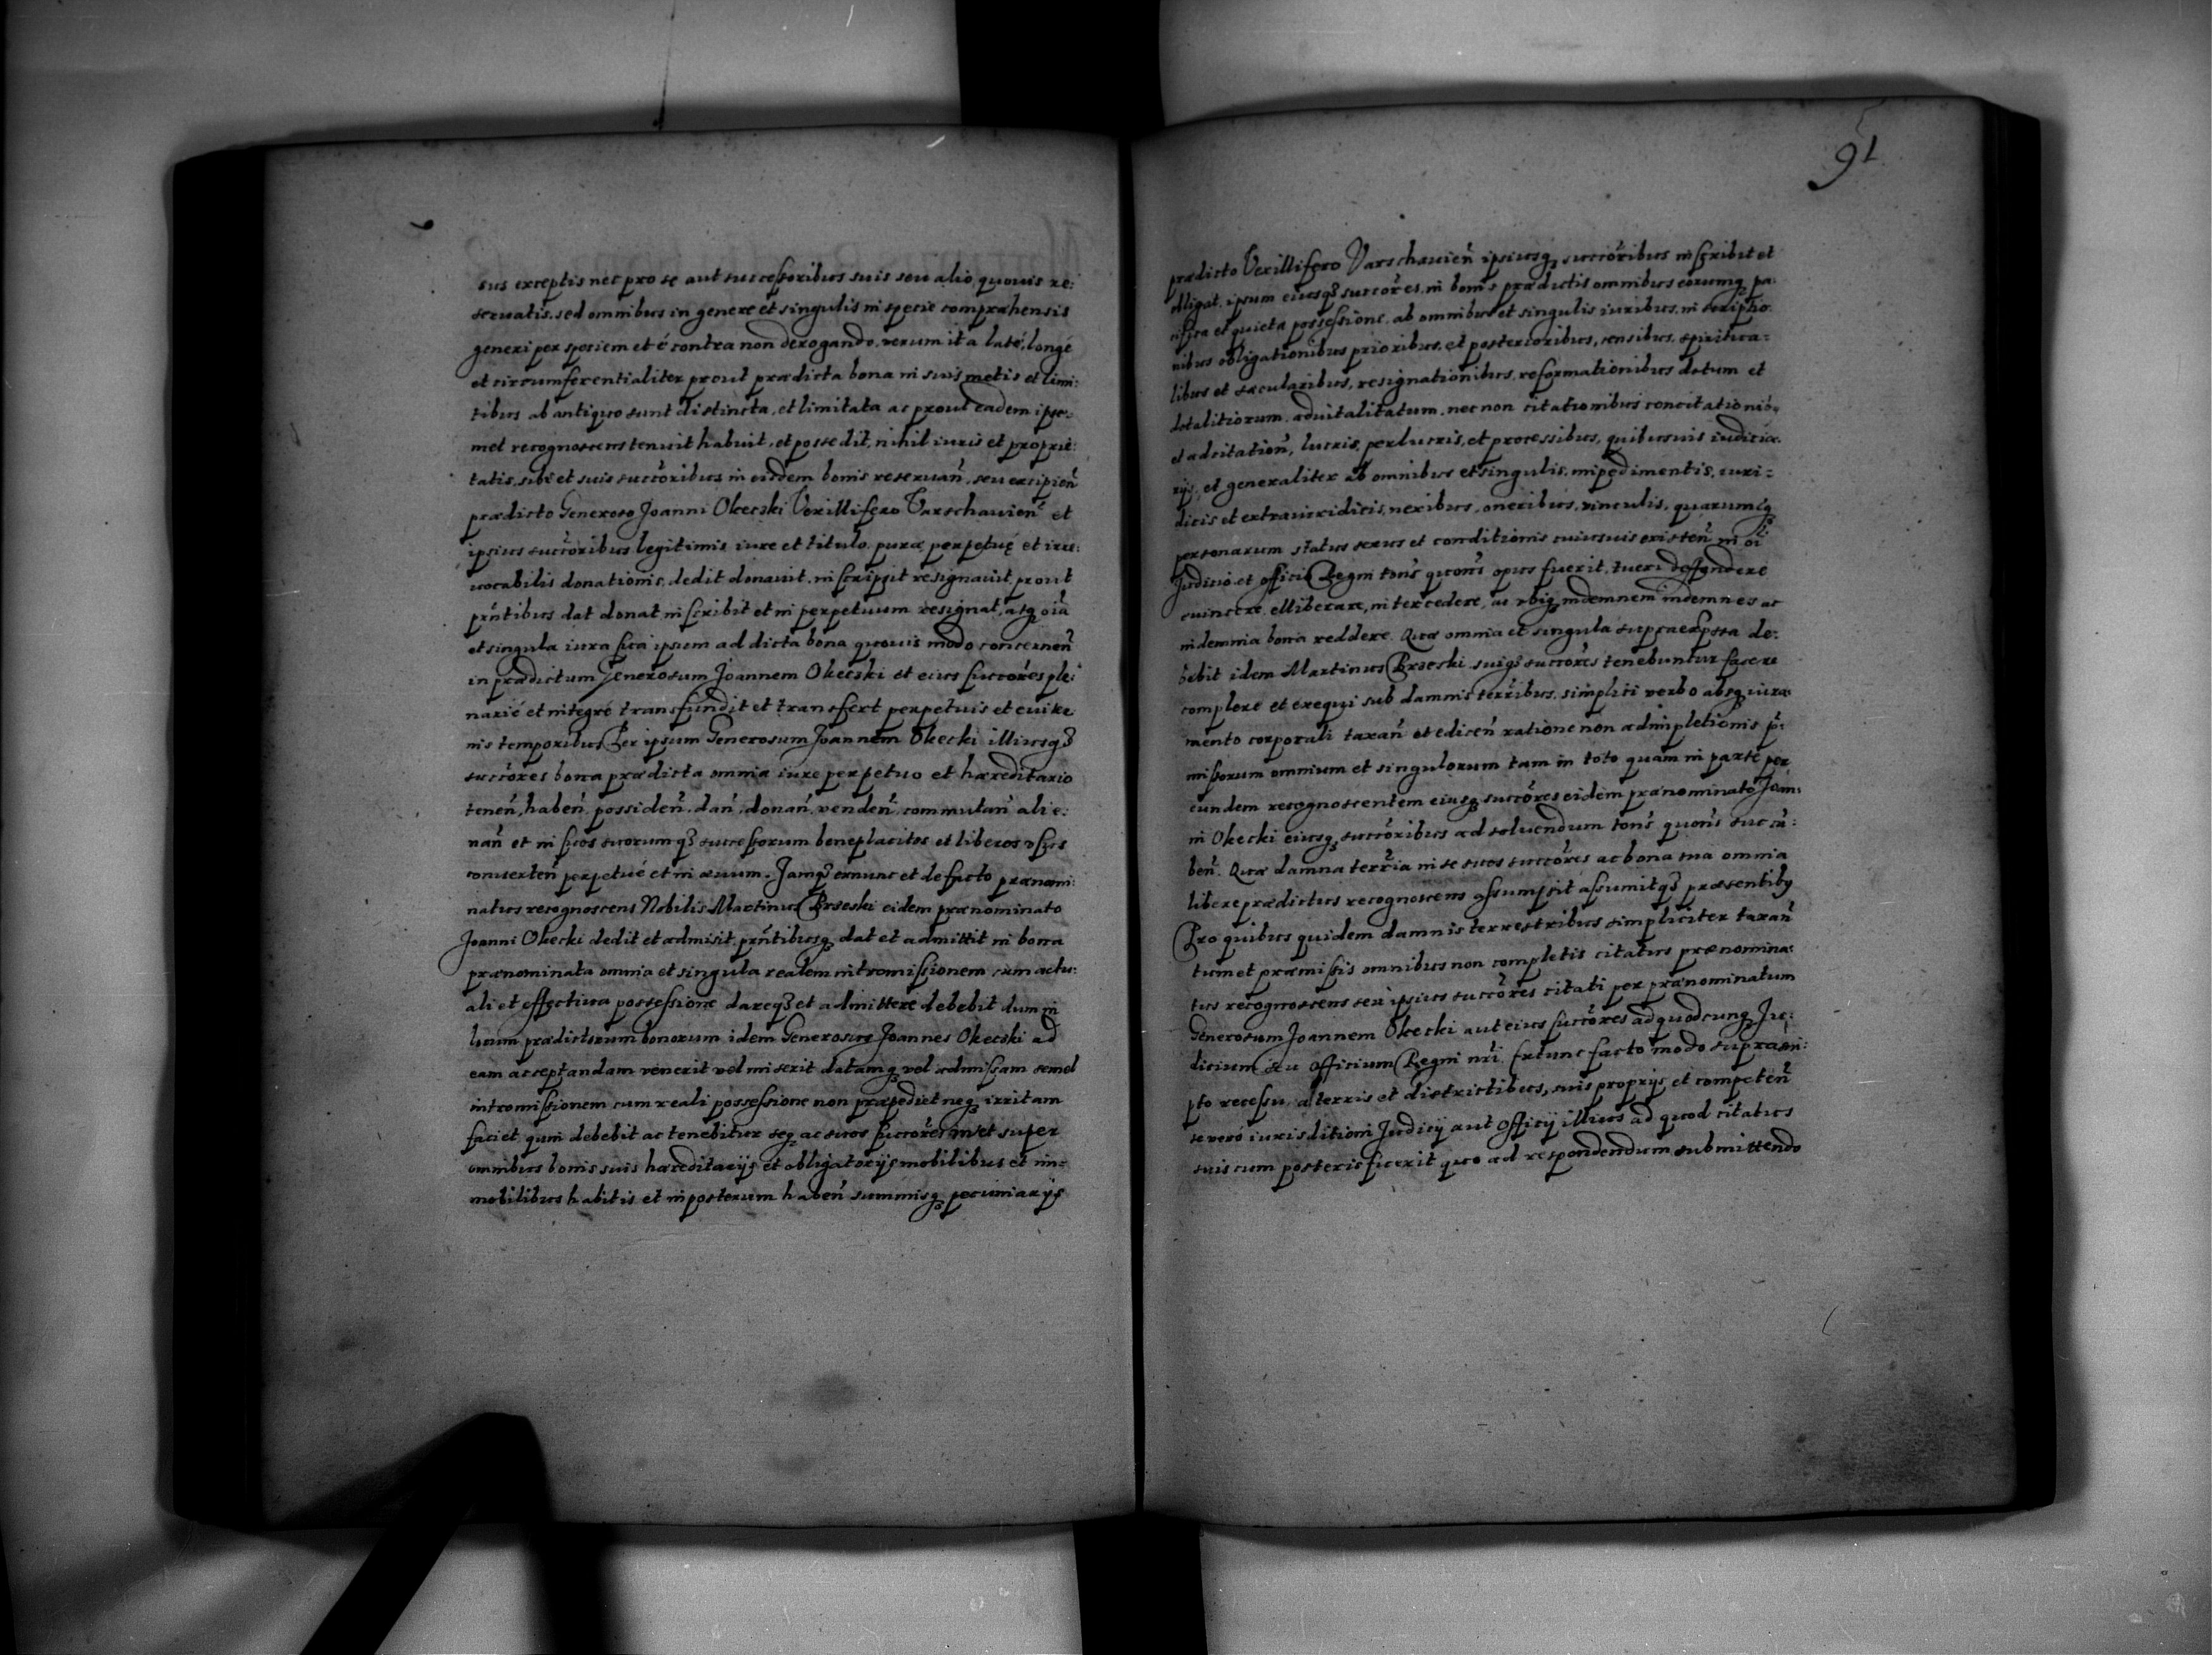 sus exceptis nec pro se aut successoribus suis seu alio quouis re:
seruatis, sed omnibus in genere et singulis in specie compræhensis
generi per speciem et é contra non derogando, verum ita laté, longé
et circumferentialiter prout prædicta bona in suis metis et limi:
tibus ab antiquo sunt distincta, et limitata ac prout eadem ipse:
met recognoscens tenuit habuit, et possedit, nihil iuris et proprie:
tatis, sibi et suis succõribus in eisdem bonis reseruań, seu excipień
prædicto Generoso Joanni Okecski Vexillifero Varschauień et
ipsius succõribus legitimis iure et titulo puræ perpetuę et irre:
uocabilis donationis, dedit donauit, inscripsit resignauit, prout
pñtibus dat donat inscribit et in perpetuum resignat, atq3 oĩa
et singula iura sua ipsum ad dicta bona quouis modo concerneń
in prædictum Generosum Joannem Okecski et eius succõres ple:
narié et integré transfundit et transfert perpetuis et euiter
nis temporibus Per ipsum Generosum Joannem Okecki illiusq3
succõres bona prædicta omnia iure perpetuo et hæreditario
teneń, habeń, possideń, dań, donań, vendeń, commutań alie:
nań et in suos suorumq3 successorum beneplacitos et liberos vsus
conuerteń perpetué et in æuum. Jamq3 exnunc et de facto prænomi:
natus recognoscens Nobilis Martinus Brzeski eidem prænominato
Joanni Okecki dedit et admisit, pñtibusq3 dat et admittit in bona
prænominata omnia et singula realem intromissionem cum actu:
ali et effectiua possessione dareq3 et admittere debebit dum in
bonum prædictorum bonorum idem Generosus Joannes Okecski ad
eam acceptandam venerit vel miserit datamq3 vel admissam semel
intromissionem cum reali possessione non præpediet neq3 irritam
faciet, quin debebit ac tenebitur seq3 ac suos succõres in et super
omnibus bonis suis hæreditarijs et obligatorijs mobilibus et im:
mobilibus habitis et in posterum habeń summisq3 pecuniarijs
91
prædicto Vexillifero Varschauień ipsiusq3 succõribus inscribit et
obligat, ipsum eiusq3 succõres, in bonis prædictis omnibus eorumq3 pa:
cifica et quieta possessione, ab omnibus et singulis iuribus, inscriptio:
nibus obligationibus prioribus, et posterioribus, censibus, spiritua:
libus et sæcularibus, resignationibus, reformationibus dotum et
dotalitiorum, aduitalitatum, nec non citationibus concitationib9
et adcitatioń, lucris, perlucris, et processibus, quibusuis iudicia:
rijs, et generaliter ab omnibus et singulis, impedimentis, iuri:
dicis et extraiuridicis, nexibus, oneribus, vinculis, quarumcq3
personarum status sexus et conditionis cuiusuis existeń in oĩ
Judicio et officio Regni tońs quońs opus fuerit, tueri defendere
euincere elliberare, intercedere, ac vbiq3 indemnem indemnes ac
indemnia bona reddere. Quæ omnia et singula supraexpssa de:
bebit idem Martinus Brzeski suiq3 succõres tenebuntur facere
complere et exequi sub damnis terribus, simplici verbo absq3 iura:
mento corporali taxań et ediceń ratione non adimpletionis p̃:
missorum omnium et singulorum tam in toto quam in parte per
eundem recognoscentem eiusq3 succõres eidem prænominato Joan:
ni Okecki eiusq3 succõribus ad soluendum tońs quońs succũ:
beń. Quæ damna terria in se suos succõres ac bona sua omnia
libere prædictus recognoscens assumpsit assumitq3 præsentib9
Pro quibus quidem damnis terrestribus simpliciter taxań
tum et præmissis omnibus non completis citatus prænomina:
tus recognoscens seu ipsius succõres citati per prænominatum
Generosum Joannem Okecki aut eius succõres ad quodcunq3 Ju:
dicium seu officium Regni nrĩ, extunc facto modo supræsri:
pto recessu, a terris et districtibus, suis proprijs et competeń
se veró iurisditioni Judicij aut officij illius ad quod citatus
suis cum posteris fuerit quo ad respondendum submittendo